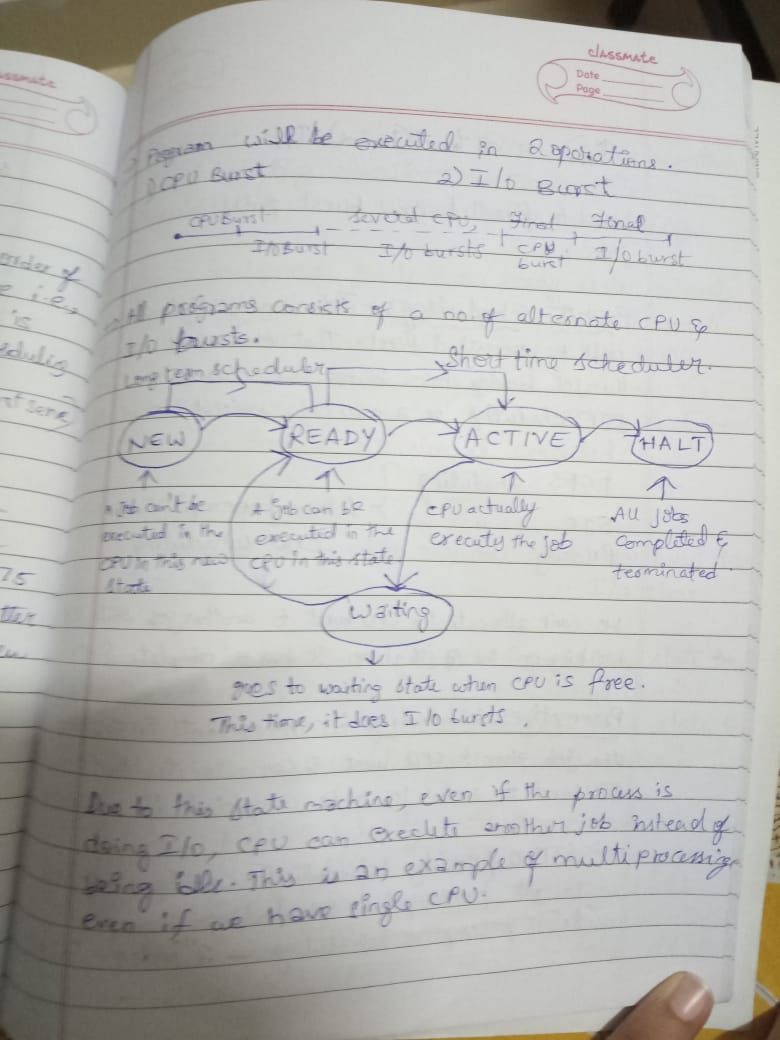 classmate
Date
Page
→ Program will be executed in 2 operations.
1) CPU Burst 2) I/o Burst
CPU Burst I/o Burst Several CPU, I/o bursts Final CPU burst Final I/o burst
→ All programs consists of a no of alternate CPU &
I/o bursts.
Long team scheduler Short time scheduler.
NEW READY ACTIVE HALT
A job can't be
executed in the
CPU in this new
state
A job can be
executed in the
CPU in this state
CPU actually
executy the job
All jobs
completed &
terminated
Waiting
goes to waiting state when CPU is free.
This time, it does I/o bursts.
Due to this state machine, even if the process is
doing I/o, CPU can execute another job instead of
being idle. This is an example of multiprocessing
even if we have single CPU.
assmate
order of
e i.e.,
is
eduling
75
tter